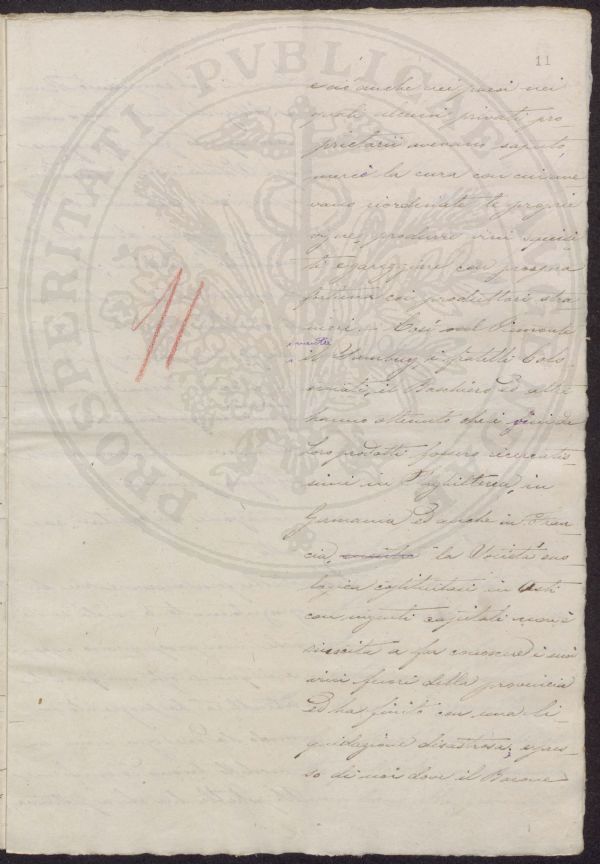 11
PROSPERITATI PVBLICAE
11
così anche nei paesi nei
quali alcuni privati pro
prietarii avevano saputo,
mercè la cura con cui ave
vano riordinate le proprie
vigne, produrre vini squisi
ti e gareggiare con prospera
fortuna coi produttori stra
nieri. Così nel Piemonte
mentre
il i fratelli
il ed altri
hanno ottenuto che i vini da
loro prodotti fossero ricercatis
simi in Inghilterra, in
Germania ed anche in Fran
cia, la Società eno
logica costituitasi in Asti
con ingenti capitali non è
riuscita a far conoscere i suoi
vini fuori della provincia
ed ha finito con una li
quidazione disastrosa;
so di noi dove il Barone